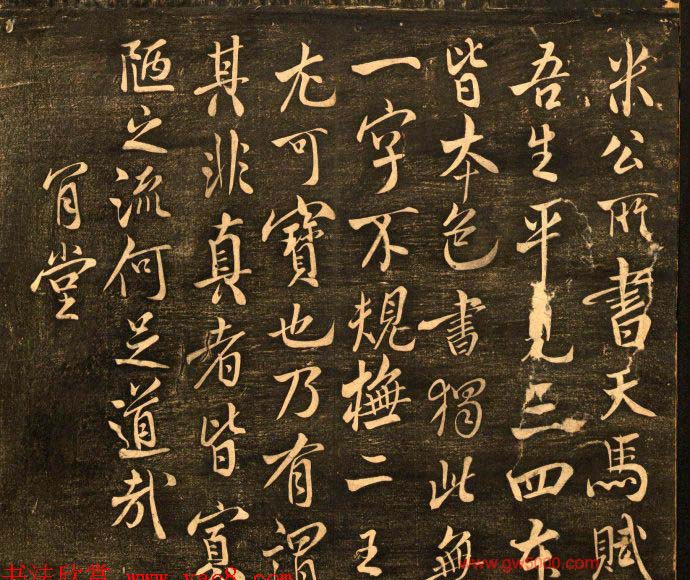 米公所書天馬賦
吾生平見三四本
皆本色書獨此無
一字不規橅二王
尤可寶也乃有謂
其非真者皆寡
陋之流何足道哉
肎堂
书法欣赏 www.yac8.com